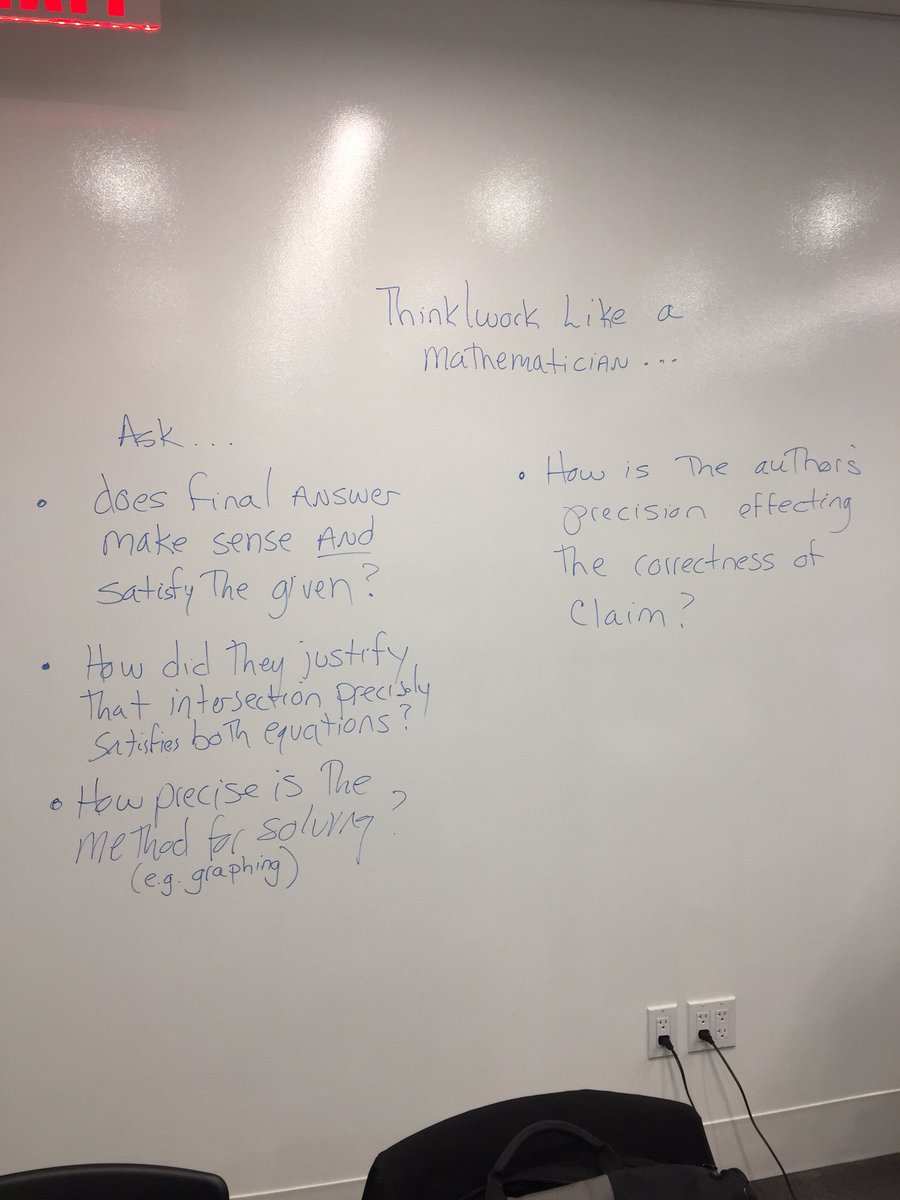 EXIT
Think/work Like a
mathematician...
Ask...
• does final answer
make sense AND
satisfy the given?
• How did they justify
that intersection precisely
satisfies both equations?
• How precise is the
method for solving?
(e.g. graphing)
• How is the author's
precision effecting
the correctness of
claim?